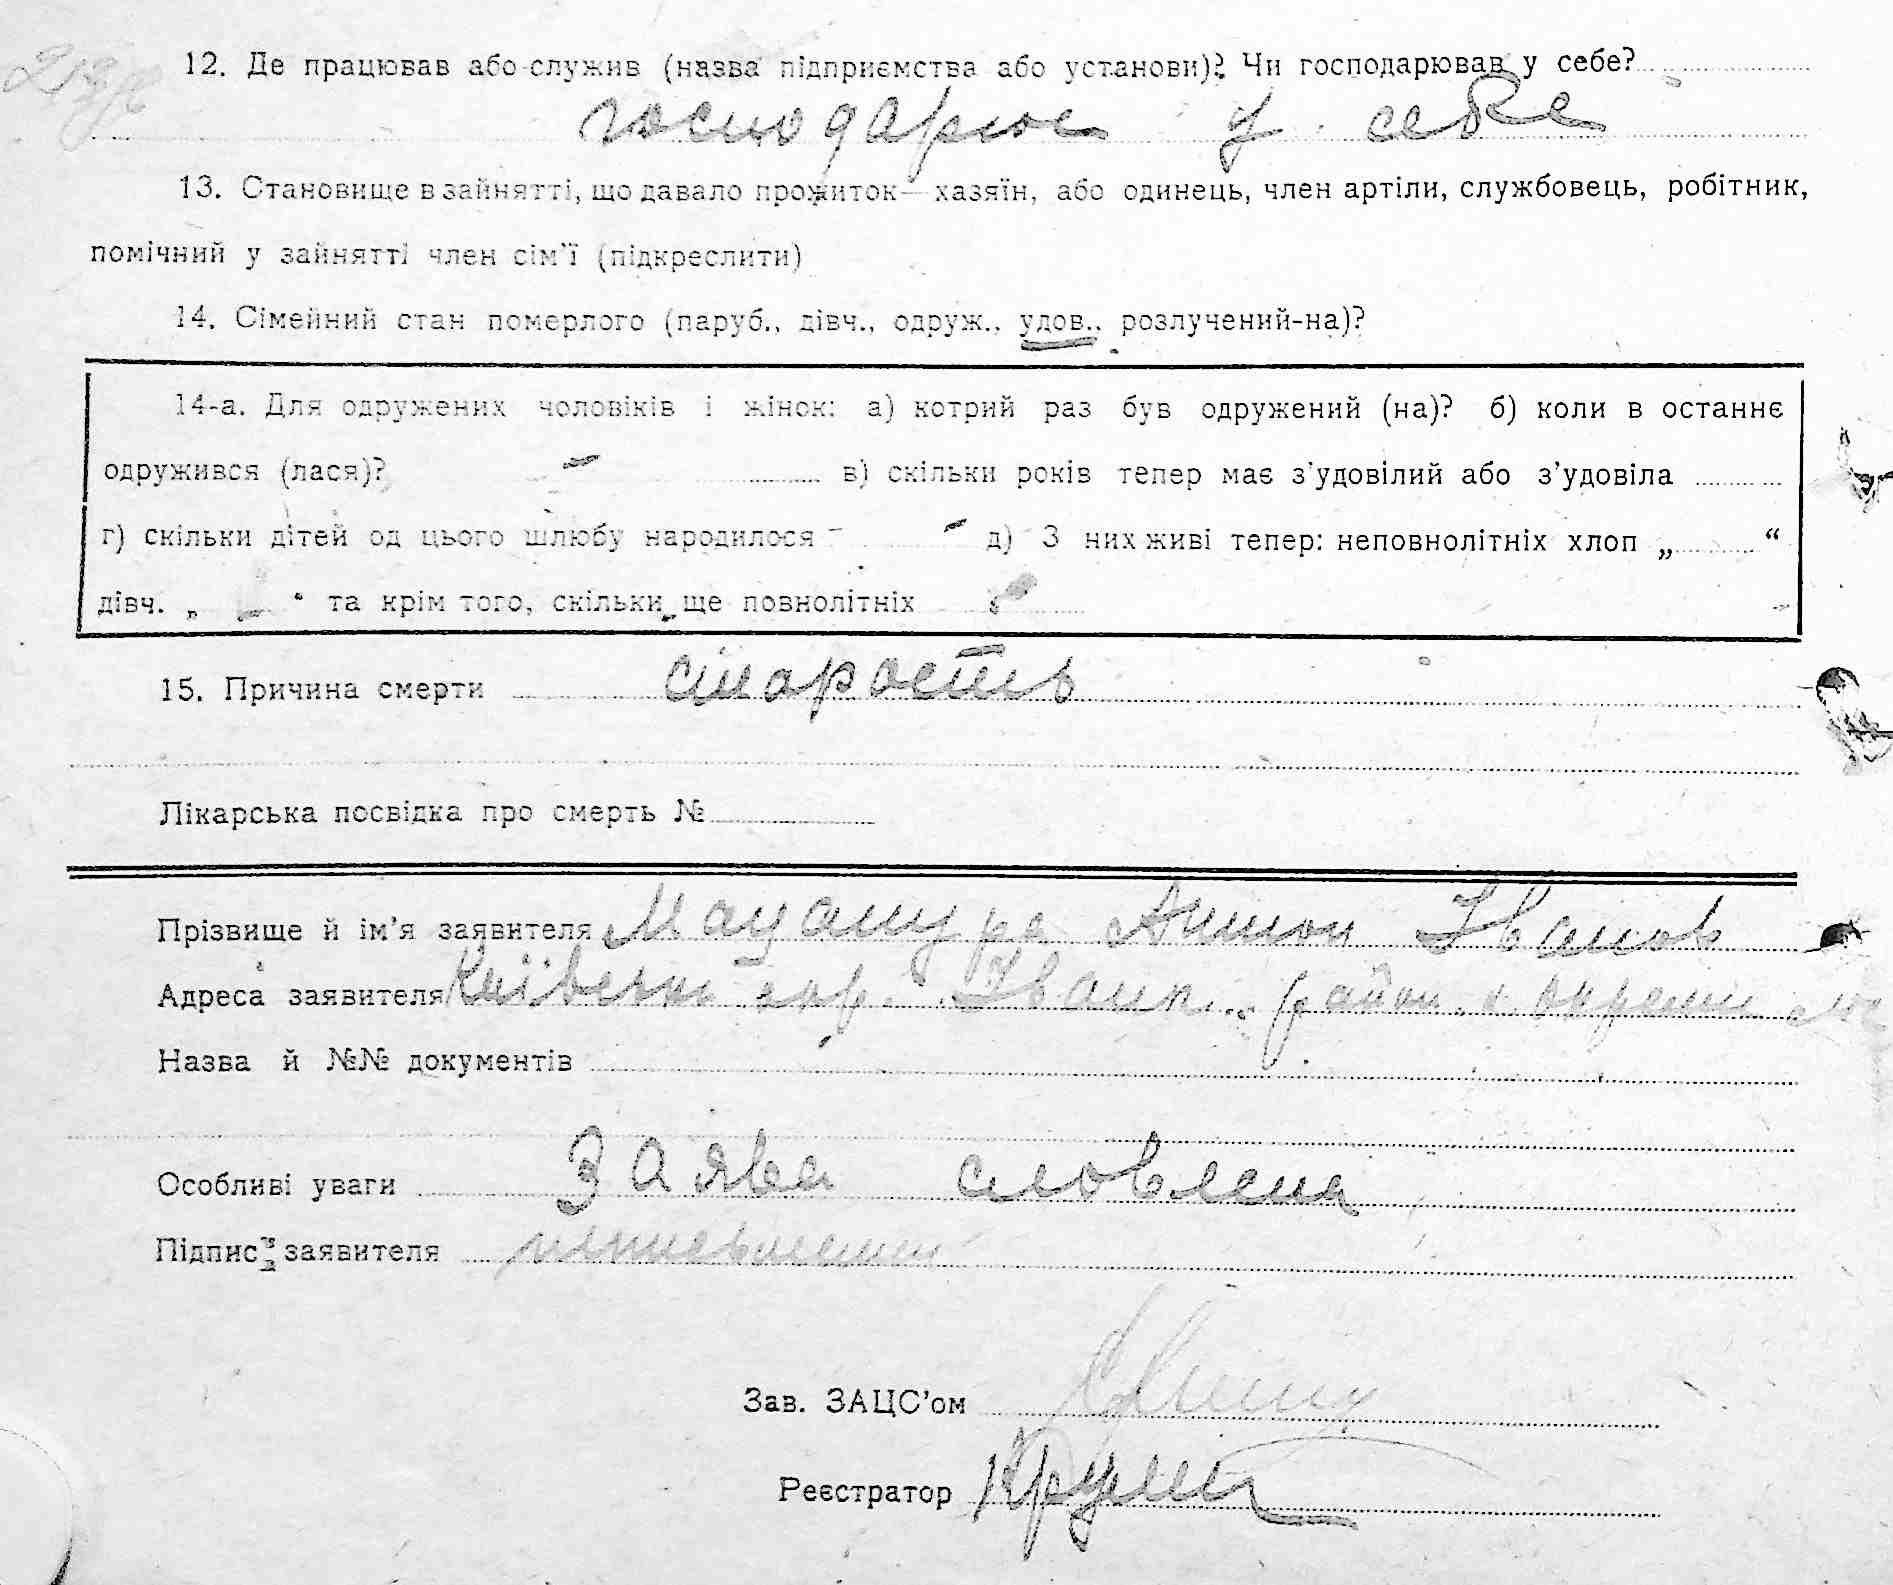 12. Де працював або служив (назва підприємства або установи)? Чи господарював у себе?
господарює у себе
13. Становище в зайнятті, що давало прожиток—хазяїн, або одинець, член артіли, службовець, робітник,
помічний у зайнятті член сім'ї (підкреслити)
14. Сімейний стан померлого (паруб., дівч., одруж., удов., розлучений-на)?
14-а. Для одружених чоловіків і жінок: а) котрий раз був одружений (на)? б) коли в останнє
одружився (лася)? – в) скільки років тепер має з'удовілий або з'удовіла
г) скільки дітей од цього шлюбу народилося – д) З них живі тепер: неповнолітніх хлоп „ “
дівч. „ – “ та крім того, скільки ще повнолітніх
15. Причина смерти старость
Лікарська посвідка про смерть №
Прізвище й ім'я заявителя Мацашура Антон Іванов
Адреса заявителя Київськ окр. Іванк. район
Назва й №№ документів
Особливі уваги Заява словесна
Підпис заявителя
Зав. ЗАЦС'ом
Реєстратор